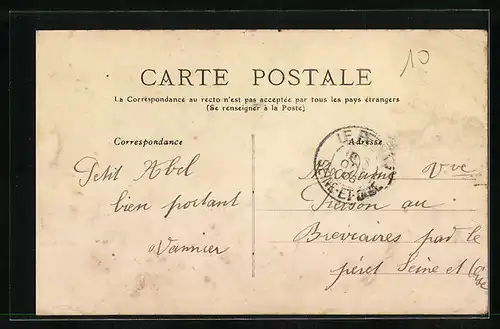 10
CARTE POSTALE
La Correspondance au recto n'est pas acceptée par tous les pays étrangers
(Se renseigner à la Poste)
Correspondance
Adresse
Petit Abel
bien portant
Vannier
LE PE
SEINE-ET-OISE
Madame Vve
Pierson au
Breviaires par le
péret Seine et Oise